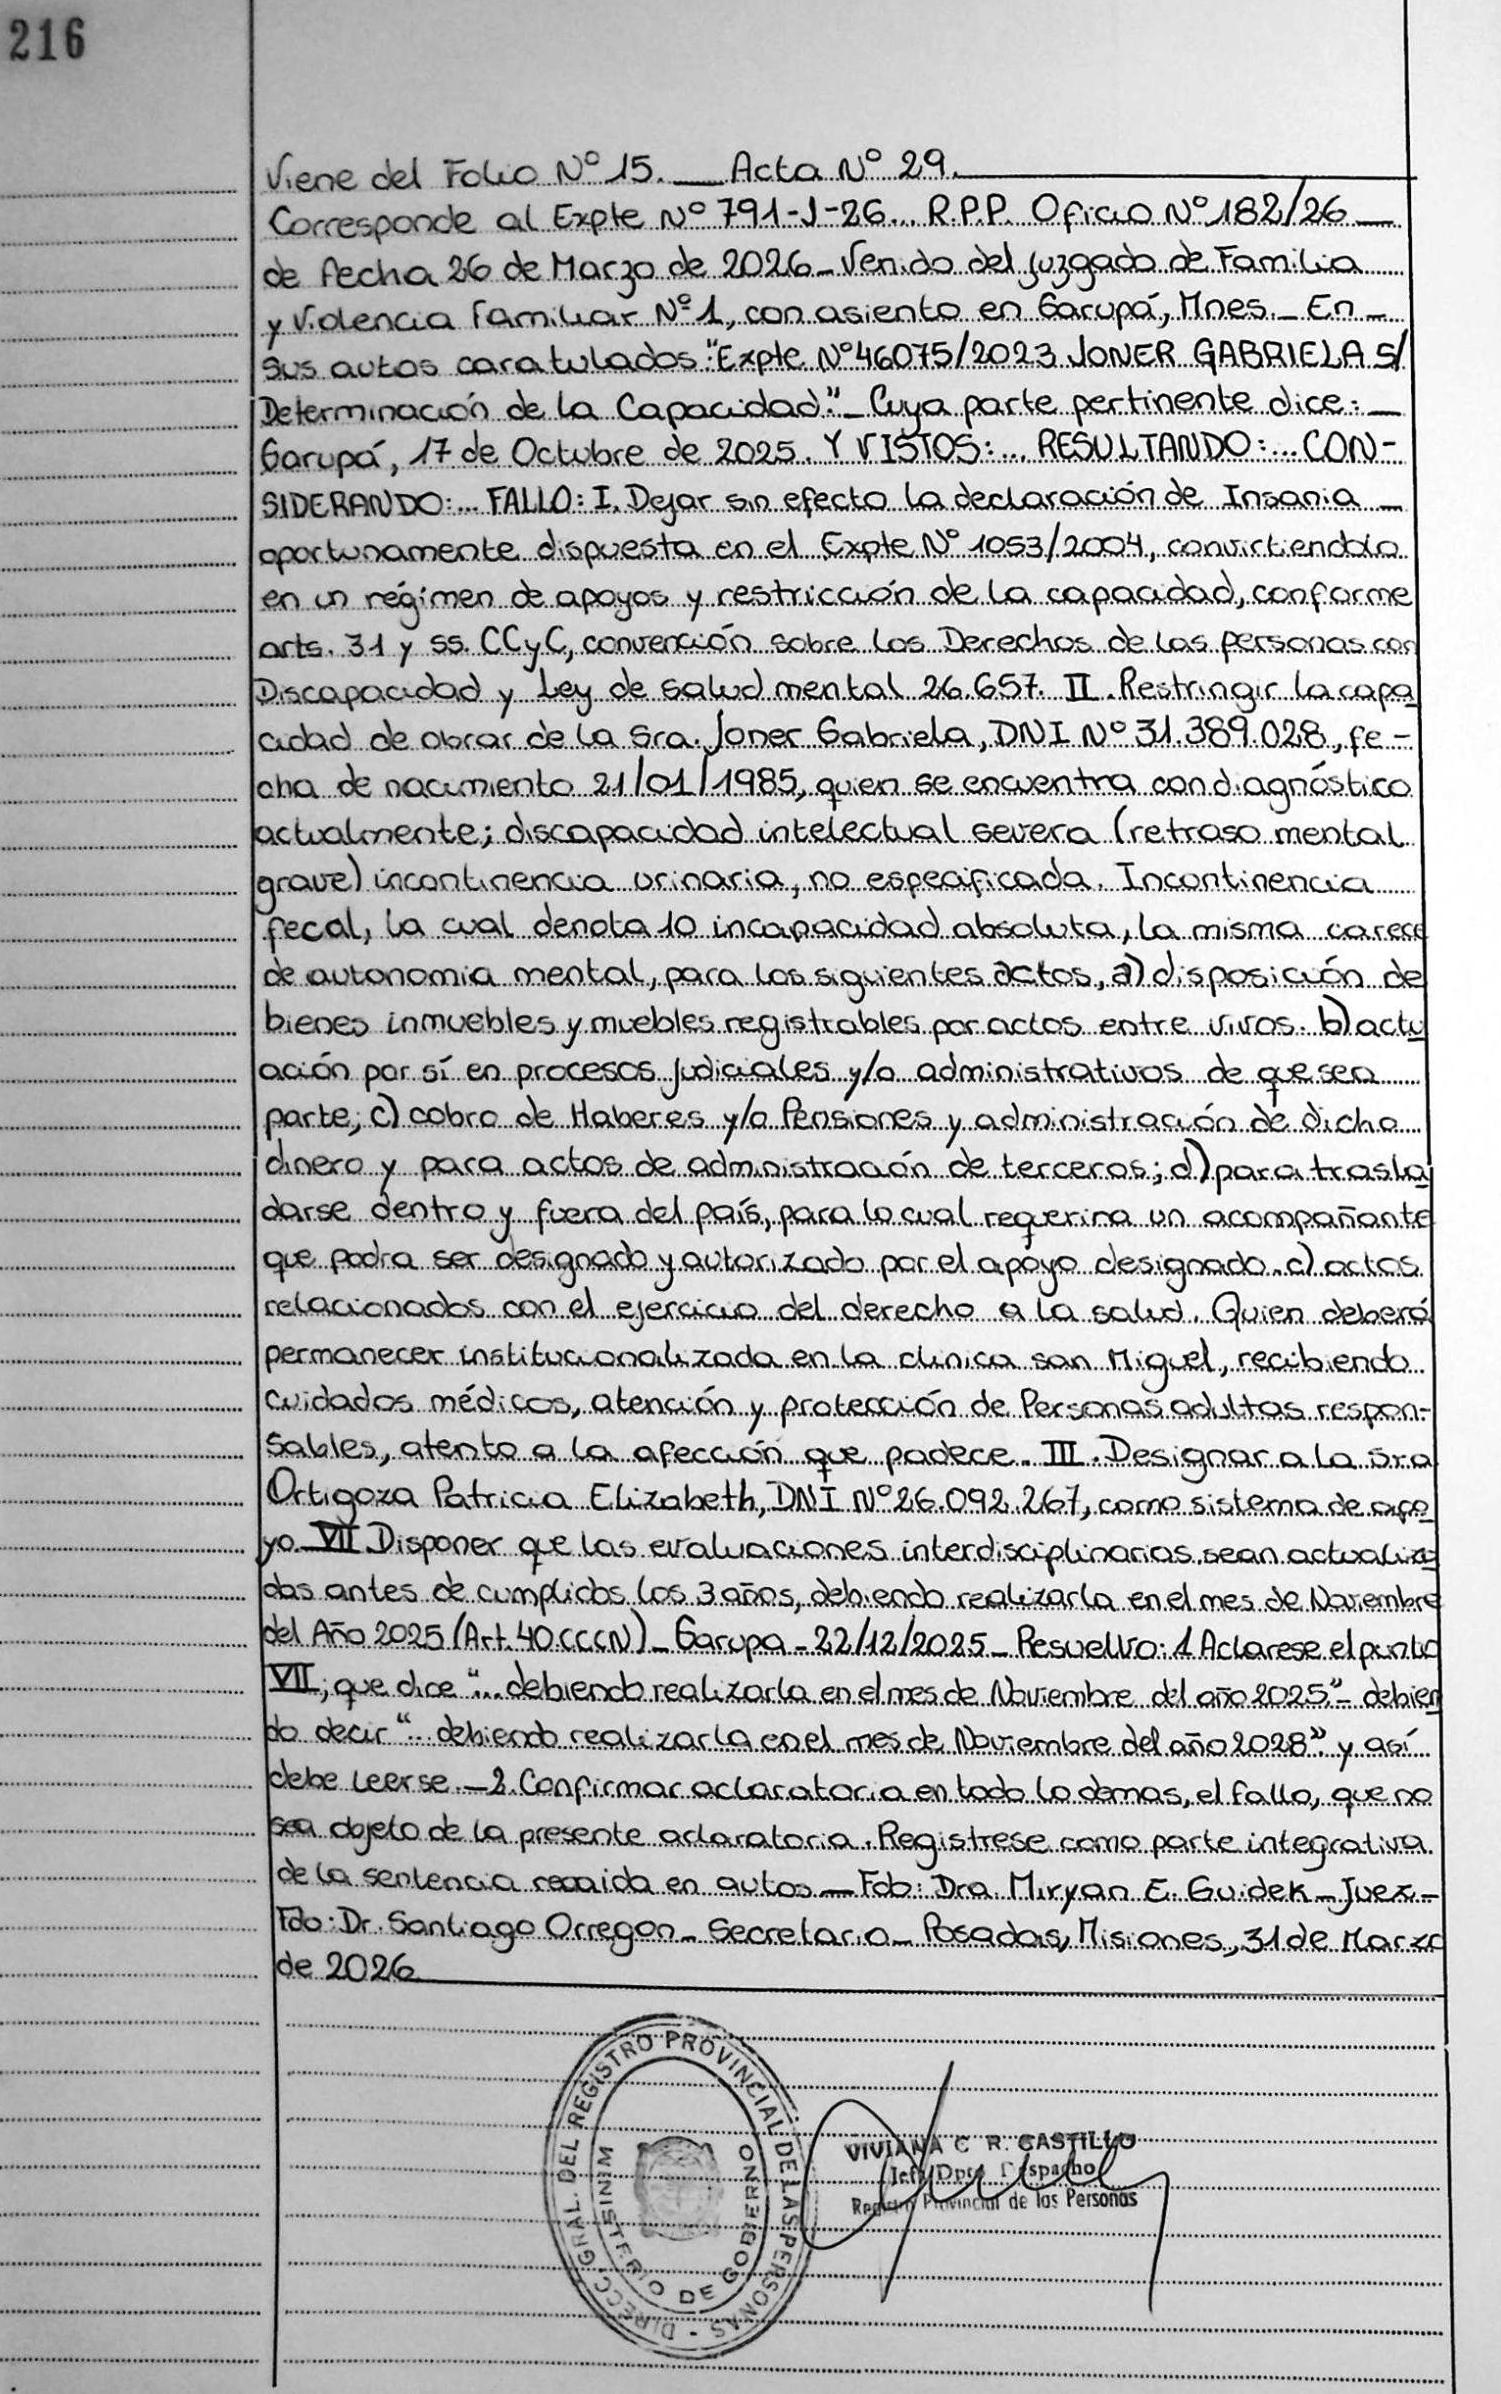 216
Viene del Folio Nº 15. __ Acta Nº 29.
Corresponde al Expte Nº 791-J-26... R.P.P. Oficio Nº 182/26 _
de fecha 26 de Marzo de 2026 _ Venido del Juzgado de Familia
y Violencia Familiar Nº 1, con asiento en Garupá, Mnes. _ En _
sus autos caratulados: "Expte Nº 46075/2023 JONER GABRIELA S/
Determinación de la Capacidad." _ Cuya parte pertinente dice: _
Garupá, 17 de Octubre de 2025. Y VISTOS:... RESULTANDO:... CON-
SIDERANDO:... FALLO: I. Dejar sin efecto la declaración de Insania _
oportunamente dispuesta en el Expte Nº 1053/2004, convirtiendolo
en un régimen de apoyos y restricción de la capacidad, conforme
arts. 31 y ss. CCyC, convención sobre los Derechos de las personas con
Discapacidad y Ley de Salud mental 26.657. II. Restringir la capa
cidad de obrar de la Sra. Joner Gabriela, DNI Nº 31.389.028, fe -
cha de nacimiento 21/01/1985, quien se encuentra con diagnóstico
actualmente; discapacidad intelectual severa (retraso mental
grave) incontinencia urinaria, no especificada. Incontinencia
fecal, la cual denota 10 incapacidad absoluta, la misma carece
de autonomia mental, para los siguientes actos, a) disposición de
bienes inmuebles y muebles registrables por actos entre vivos. b) actu
ación por sí en procesos judiciales y/o administrativos de que sea
parte; c) cobro de Haberes y/o Pensiones y administración de dicho
dinero y para actos de administración de terceros; d) para trasla
darse dentro y fuera del país, para lo cual requerira un acompañante
que podra ser designado y autorizado por el apoyo designado. c) actos
relacionados con el ejercicio del derecho a la salud. Quien deberá
permanecer institucionalizada en la clinica san Miguel, recibiendo
cuidados médicos, atención y protección de Personas adultas respon-
sables, atento a la afección que padece. III. Designar a la Sra
Ortigoza Patricia Elizabeth, DNI Nº 26.092.267, como sistema de apo
yo. VII Disponer que las evaluaciones interdisciplinarias sean actualiza
das antes de cumplidos los 3 años, debiendo realizarla en el mes de Noviembre
del Año 2025 (Art. 40 CCCN) _ Garupa _ 22/12/2025 _ Resuelvo: 1 Aclarese el punto
VII; que dice "... debiendo realizarla en el mes de Noviembre del año 2025" _ debien
do decir "... debiendo realizarla en el mes de Noviembre del año 2028" y así
debe leerse. _ 2. Confirmar aclaratoria en todo lo demas, el fallo, que no
sea objeto de la presente aclaratoria. Registrese como parte integrativa
de la sentencia recaida en autos _ Fdo: Dra Miryan E. Guidek _ Juez _
Fdo: Dr. Santiago Orregon _ Secretario _ Posadas, Misiones, 31 de Marzo
de 2026
DIRECC. GRAL. DEL REGISTRO PROVINCIAL DE LAS PERSONAS -
MINISTERIO DE GOBIERNO
VIVIANA C R. CASTILLO
Jefe Dpto Despacho
Registro Provincial de las Personas